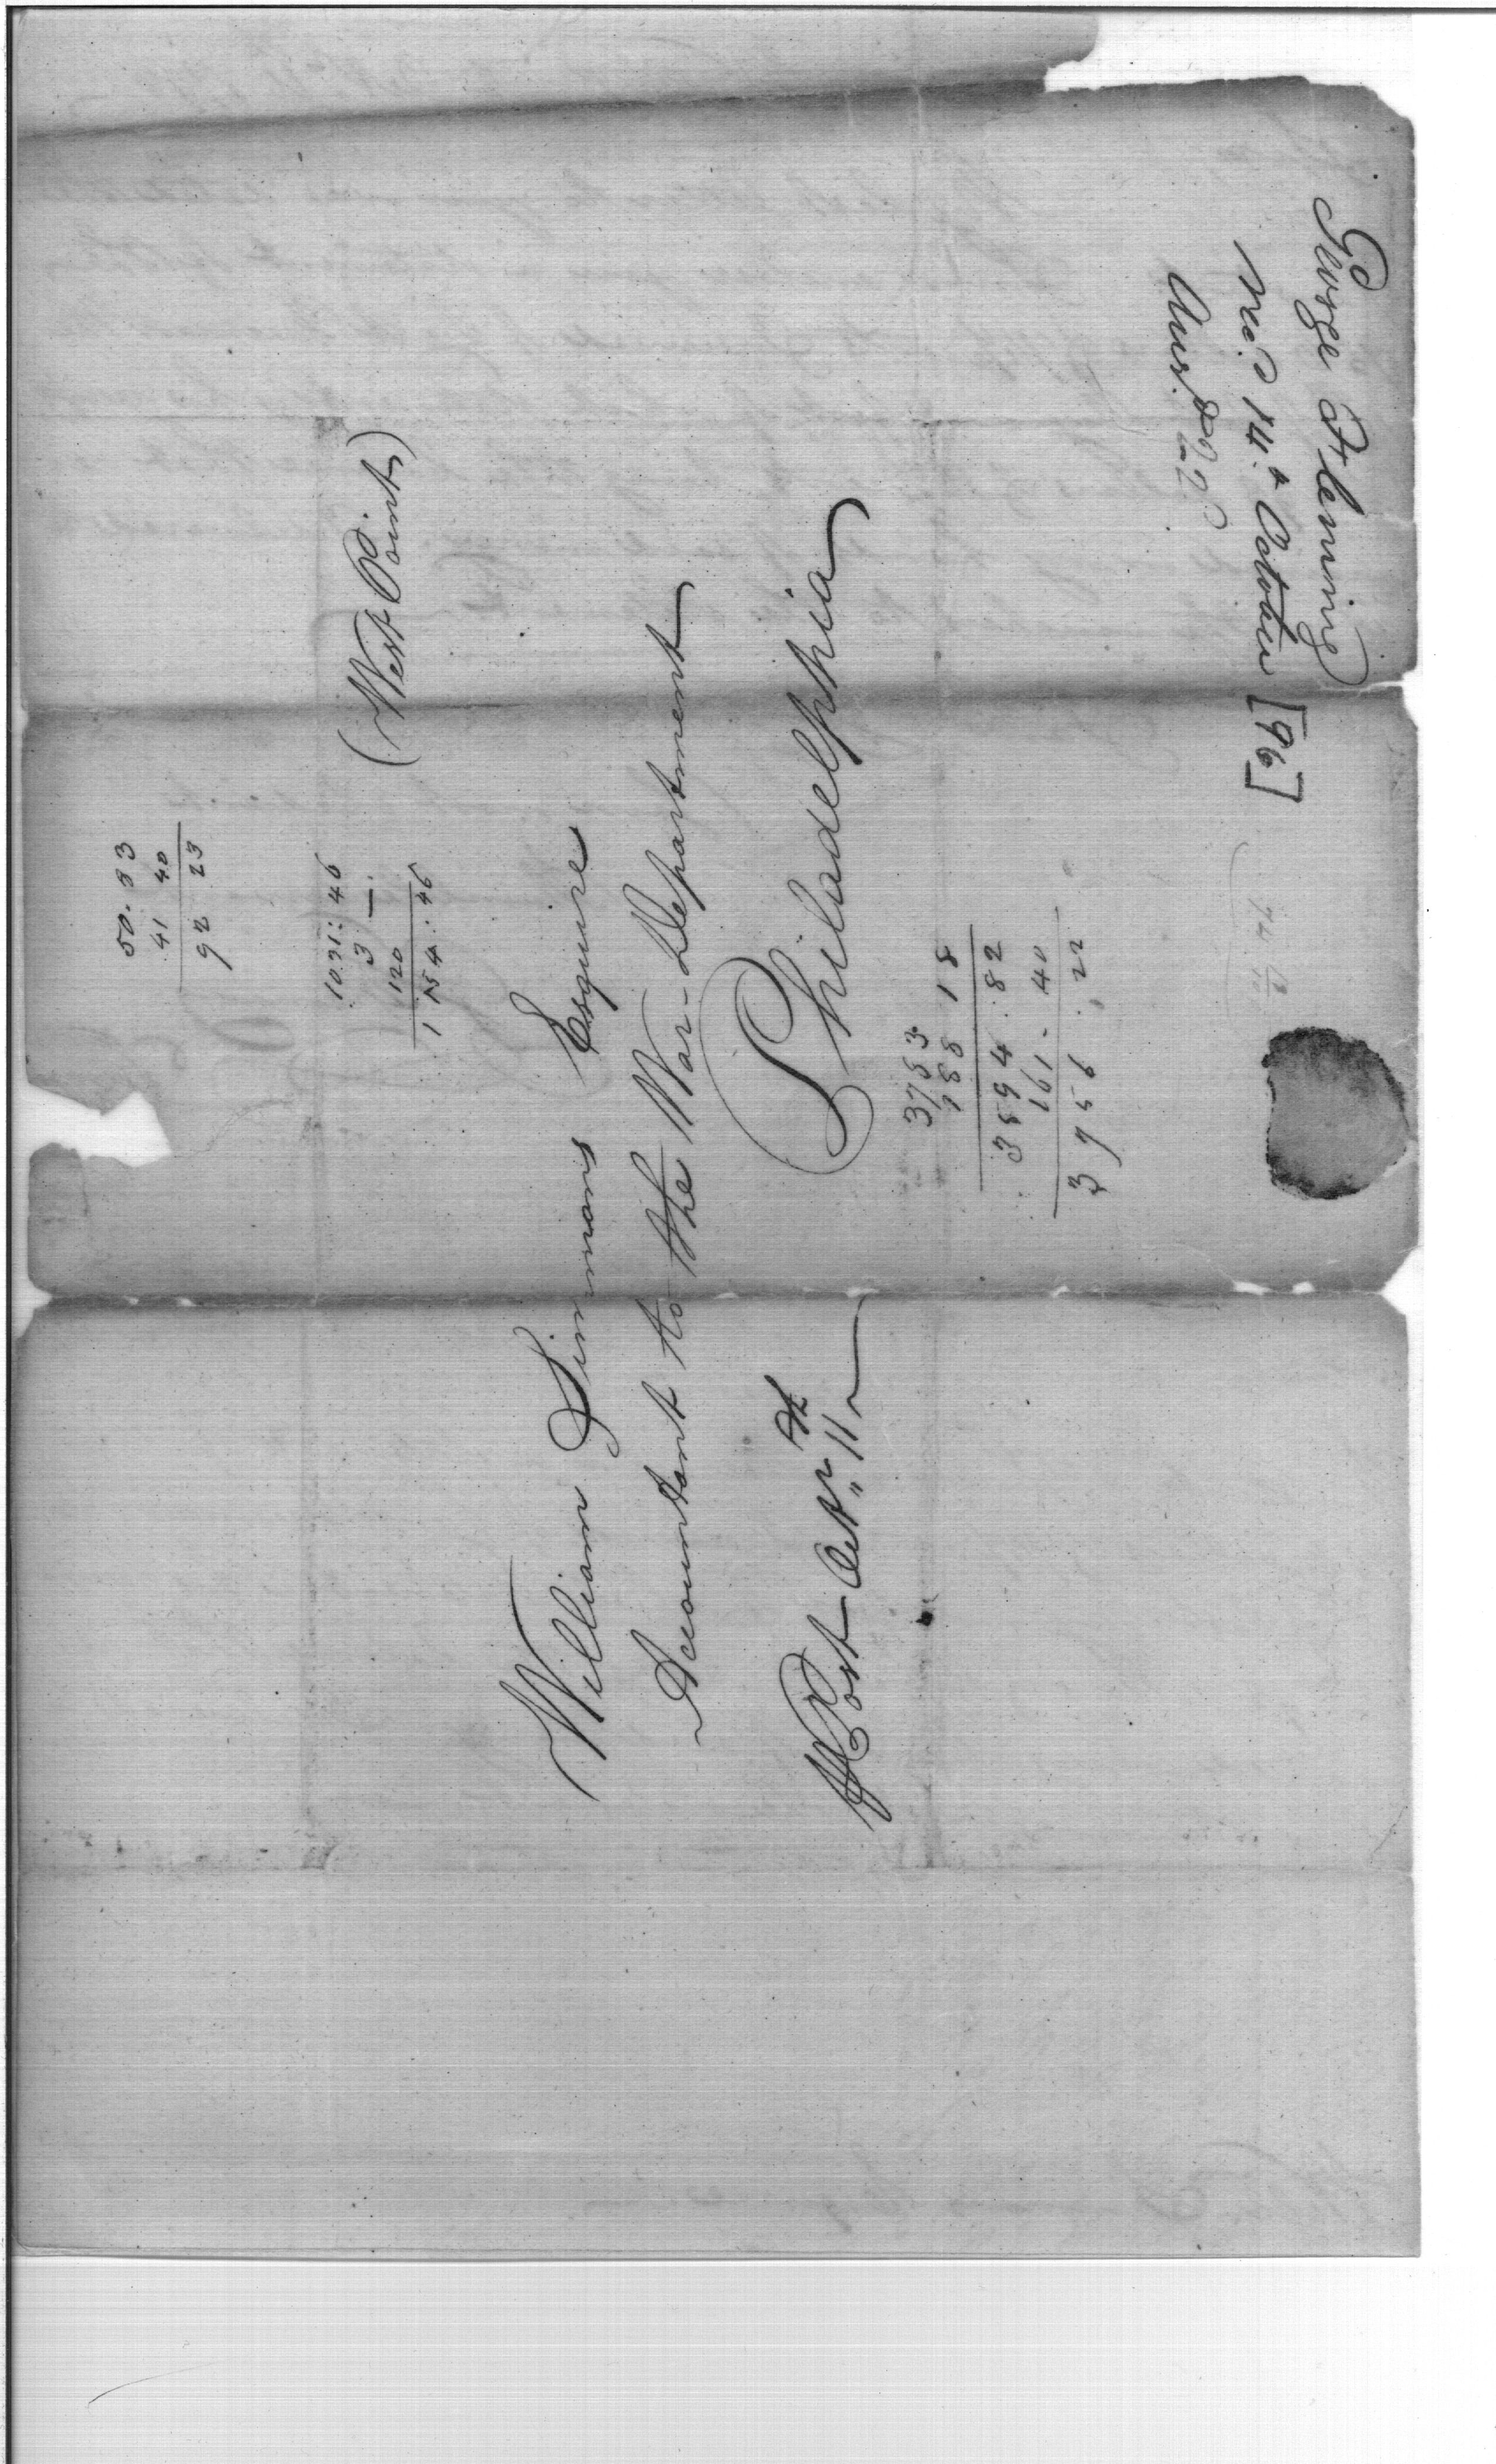 George Fleming
rec.d 14.t October [96]
Ans.d 22.d
(West Point)
50.83
41 40
92 23
1031:46
3 —
120
1154:46
William Simmons Esquire
Accountant to the War-Department
Philadelphia
Post Oct.r 11th
188 18
3594.82
161.40
3756.22